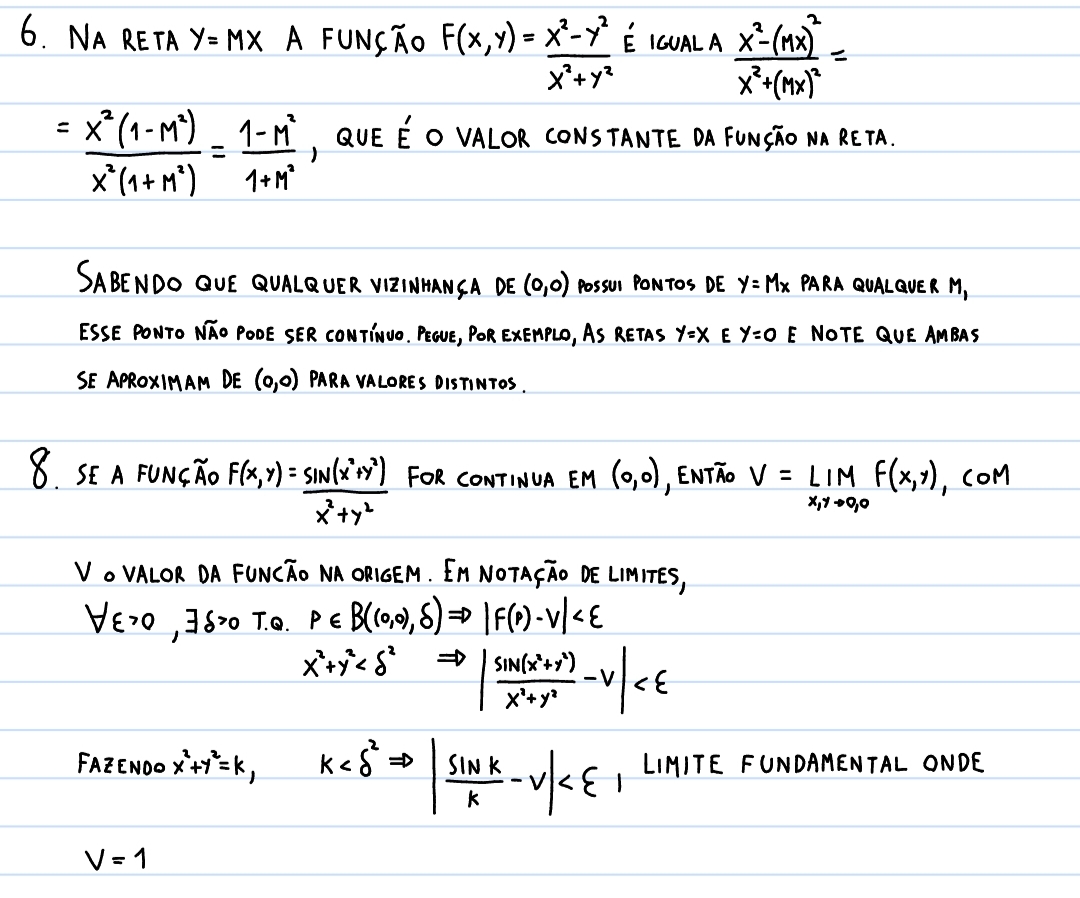 6. NA RETA Y=MX A FUNÇÃO F(X,Y) = \frac{X²-Y²}{X²+Y²} É IGUAL A \frac{X²-(MX)²}{X²+(MX)²} =
= \frac{X²(1-M²)}{X²(1+M²)} = \frac{1-M²}{1+M²}, QUE É O VALOR CONSTANTE DA FUNÇÃO NA RETA.
SABENDO QUE QUALQUER VIZINHANÇA DE (0,0) POSSUI PONTOS DE Y=MX PARA QUALQUER M,
ESSE PONTO NÃO PODE SER CONTÍNUO. PEGUE, POR EXEMPLO, AS RETAS Y=X E Y=0 E NOTE QUE AMBAS
SE APROXIMAM DE (0,0) PARA VALORES DISTINTOS.
8. SE A FUNÇÃO F(X,Y) = \frac{SIN(X²+Y²)}{X²+Y²} FOR CONTINUA EM (0,0), ENTÃO V = LIM_{X,Y→0,0} F(X,Y), COM
V O VALOR DA FUNCÃO NA ORIGEM. EM NOTAÇÃO DE LIMITES,
∀ε>0, ∃δ>0 T.Q. P ∈ B((0,0), δ) ⇒ |F(P)-V| < ε
X²+Y² < δ² ⇒ |\frac{SIN(X²+Y²)}{X²+Y²} - V| < ε
FAZENDO X²+Y²=K, K < δ² ⇒ |\frac{SIN K}{K} - V| < ε, LIMITE FUNDAMENTAL ONDE
V = 1